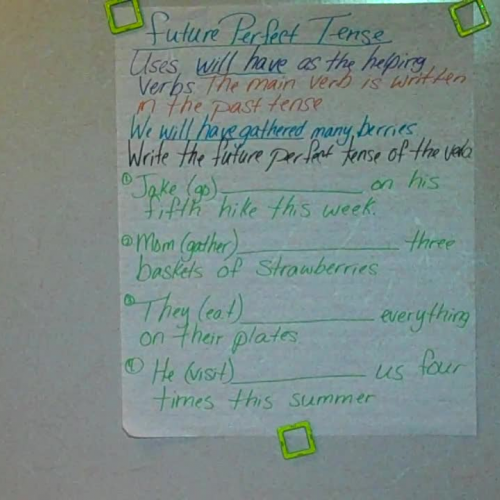 Future Perfect Tense
Uses will have as the helping
verbs The main verb is written
in the past tense
We will have gathered many berries
Write the future perfect tense of the verb
① Jake (go) __________ on his
fifth hike this week.
② Mom (gather) __________ three
baskets of strawberries
③ They (eat) __________ everything
on their plates
④ He (visit) __________ us four
times this summer